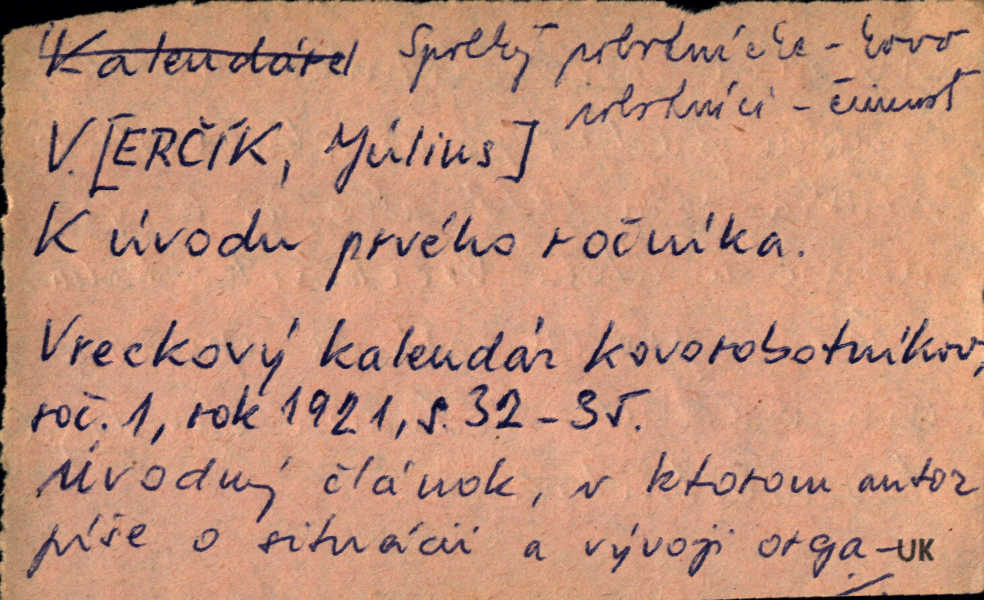 Kalendáre Spolky robotnícke - kovo
robotníci - činnosť
V. [ERČÍK, Július]
K úvodu prvého ročníka.
Vreckový kalendár kovorobotníkov,
roč. 1, rok 1921, s. 32-35.
Úvodný článok, v ktorom autor
píše o situácii a vývoji orga-
UK